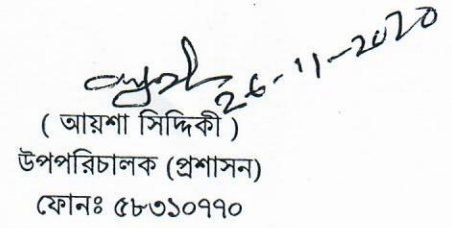 26-11-2020
( আয়শা সিদ্দিকী )
উপপরিচালক (প্রশাসন)
ফোনঃ ৫৮৩১০৭৭০